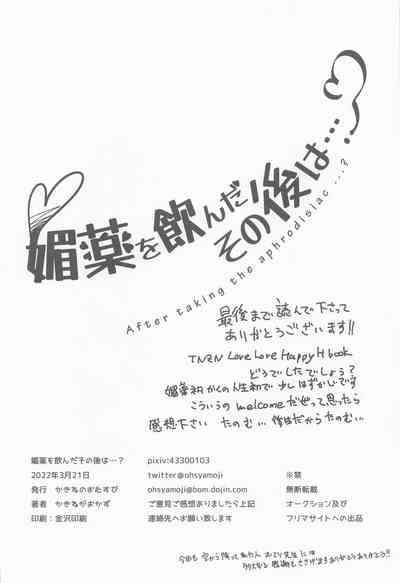 媚薬を飲んだその後は…?
After taking the aphrodisiac ...?
最後まで読んで下さって
ありがとうございます!!
TNZN Love Love Happy H book
どうでしたでしょう?
媚薬ネタかくの人生初で少しはずかしいです
こういうの welcome だぜって思ったら
感想下さい たのむ…
媚薬を飲んだその後は…?
2022年3月21日
発行 かきねのおたすび
著者 かきねがおかず
印刷:金沢印刷
pixiv:43300103
twitter@ohsyamoji
ohsyamoji@bom.dojin.com
ご意見ご感想ありましたら上記
連絡先へお願い致します
※禁
無断転載
オークション及び
フリマサイトへの出品